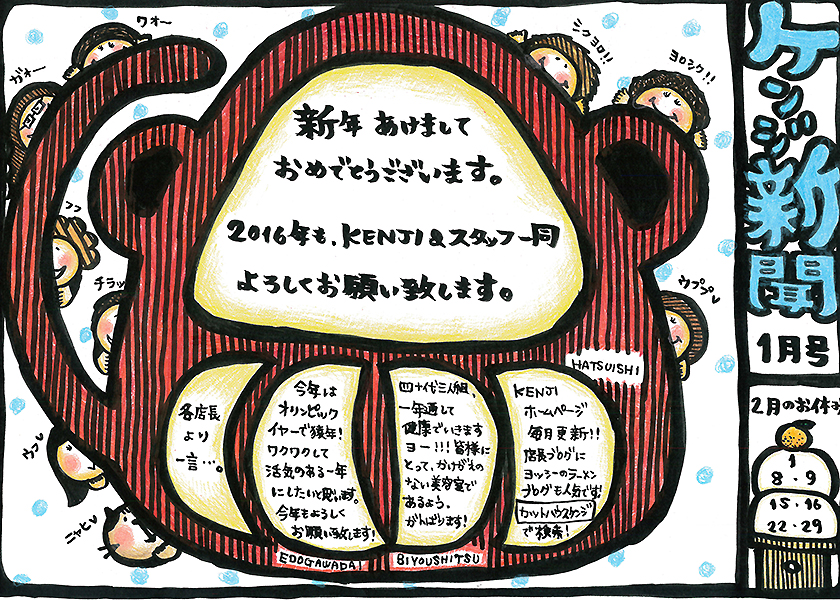 ケンジ新聞
1月号
2月のお休み
1
8・9
15・16
22・29
新年 あけまして
おめでとうございます。
2016年も、KENJI&スタッフ一同
よろしくお願い致します。
各店長
より
一言…。
今年は
オリンピック
イヤーで猿年!
ワクワクして
活気のある一年
にしたいと思います。
今年もよろしく
お願い致します!
EDOGAWADAI
四十代三人組、
一年通して
健康でいきます
ヨー!!! 皆様に
とって、かけがえの
ない美容室で
あるよう、
がんばります!
BIYOUSHITSU
HATSUISHI
KENJI
ホームページ
毎月更新!!
店長ブログに
ヨッシーのラーメン
ブログも人気です!
カットハウスケンジ
で検索!
ワオー
ガオー
ミクヨロ!!
ヨロシク!!
フフ
チラッ
ウププ
ウフレ
ニャヒ